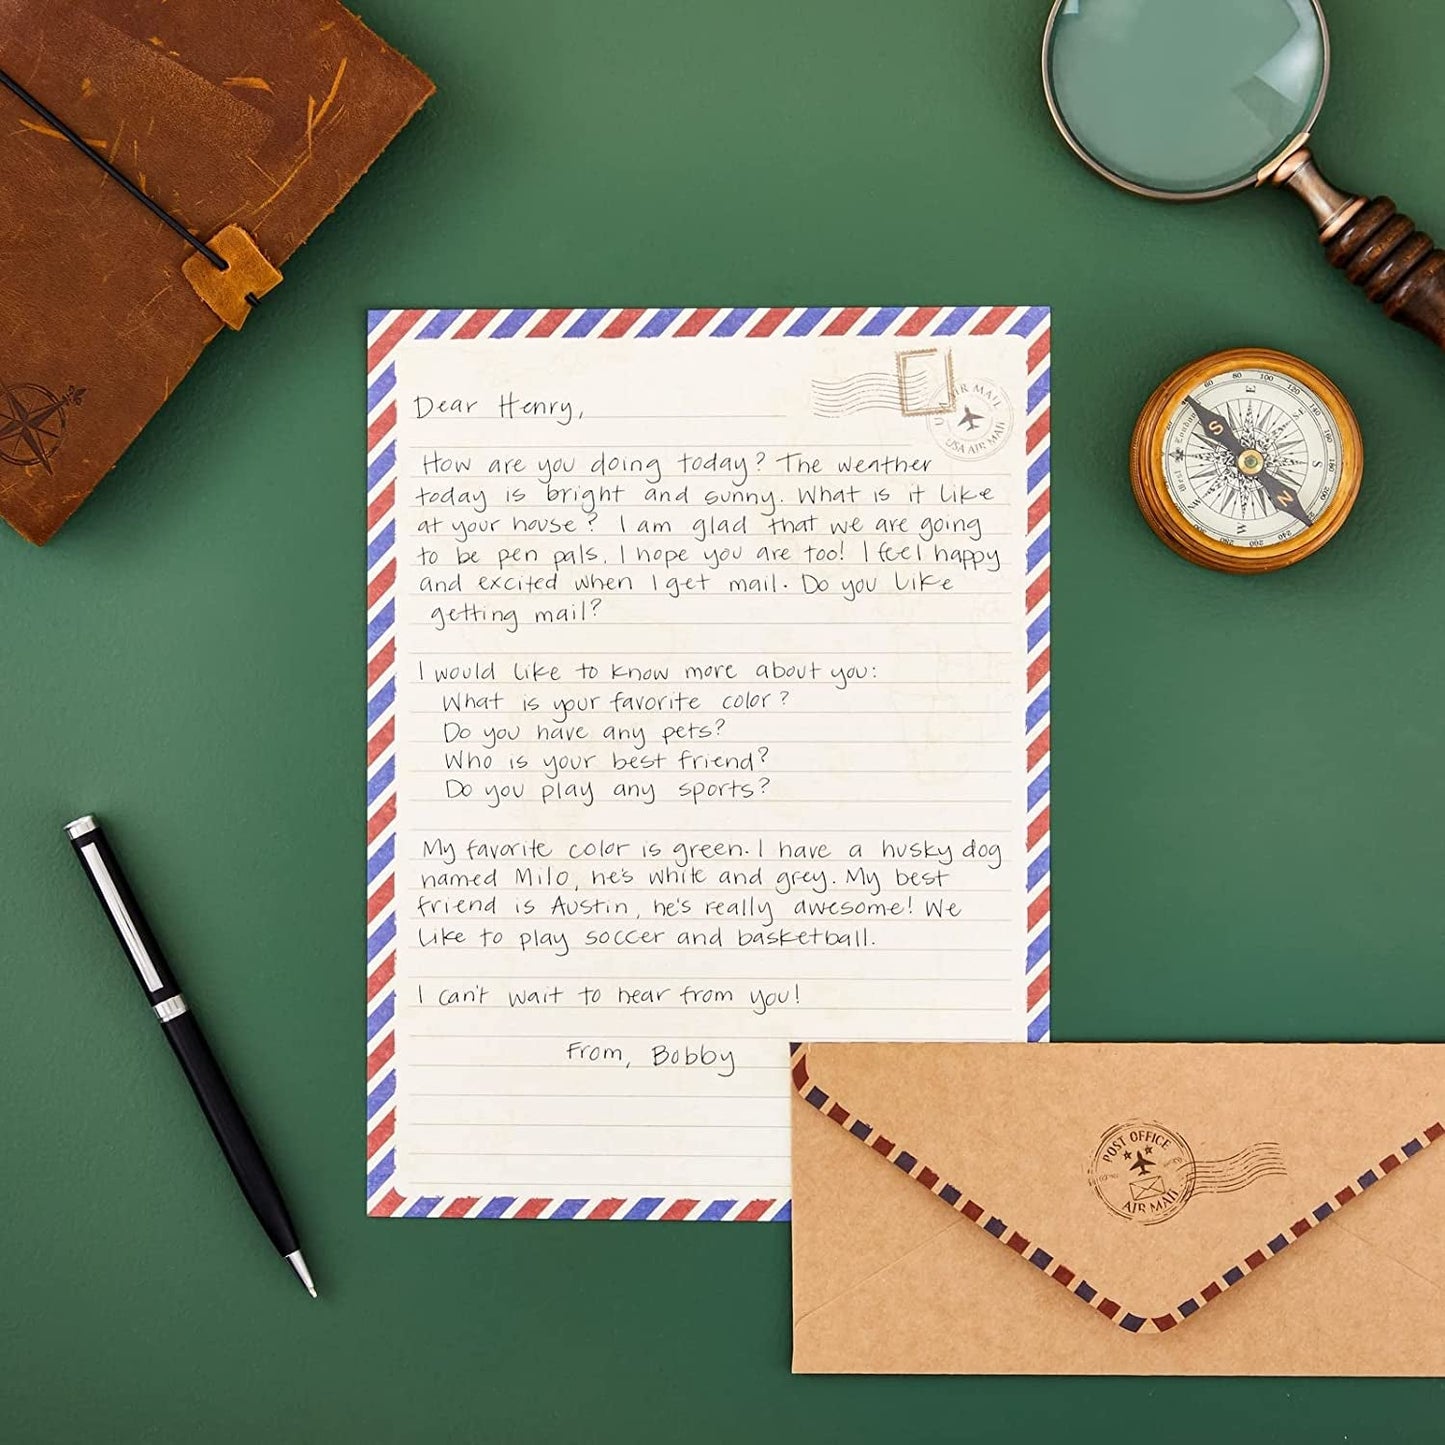 Dear Henry,
AIR MAIL
USA AIR MAIL
How are you doing today? The weather
today is bright and sunny. What is it like
at your house? I am glad that we are going
to be pen pals. I hope you are too! I feel happy
and excited when I get mail. Do you like
getting mail?
I would like to know more about you:
What is your favorite color?
Do you have any pets?
Who is your best friend?
Do you play any sports?
My favorite color is green. I have a husky dog
named Milo, he's white and grey. My best
friend is Austin, he's really awesome! We
like to play soccer and basketball.
I can't wait to hear from you!
From, Bobby
POST OFFICE
AIR MAIL
60 80 100 120 140 160 180 200 220 240 260
E
S
W
NW
S
N